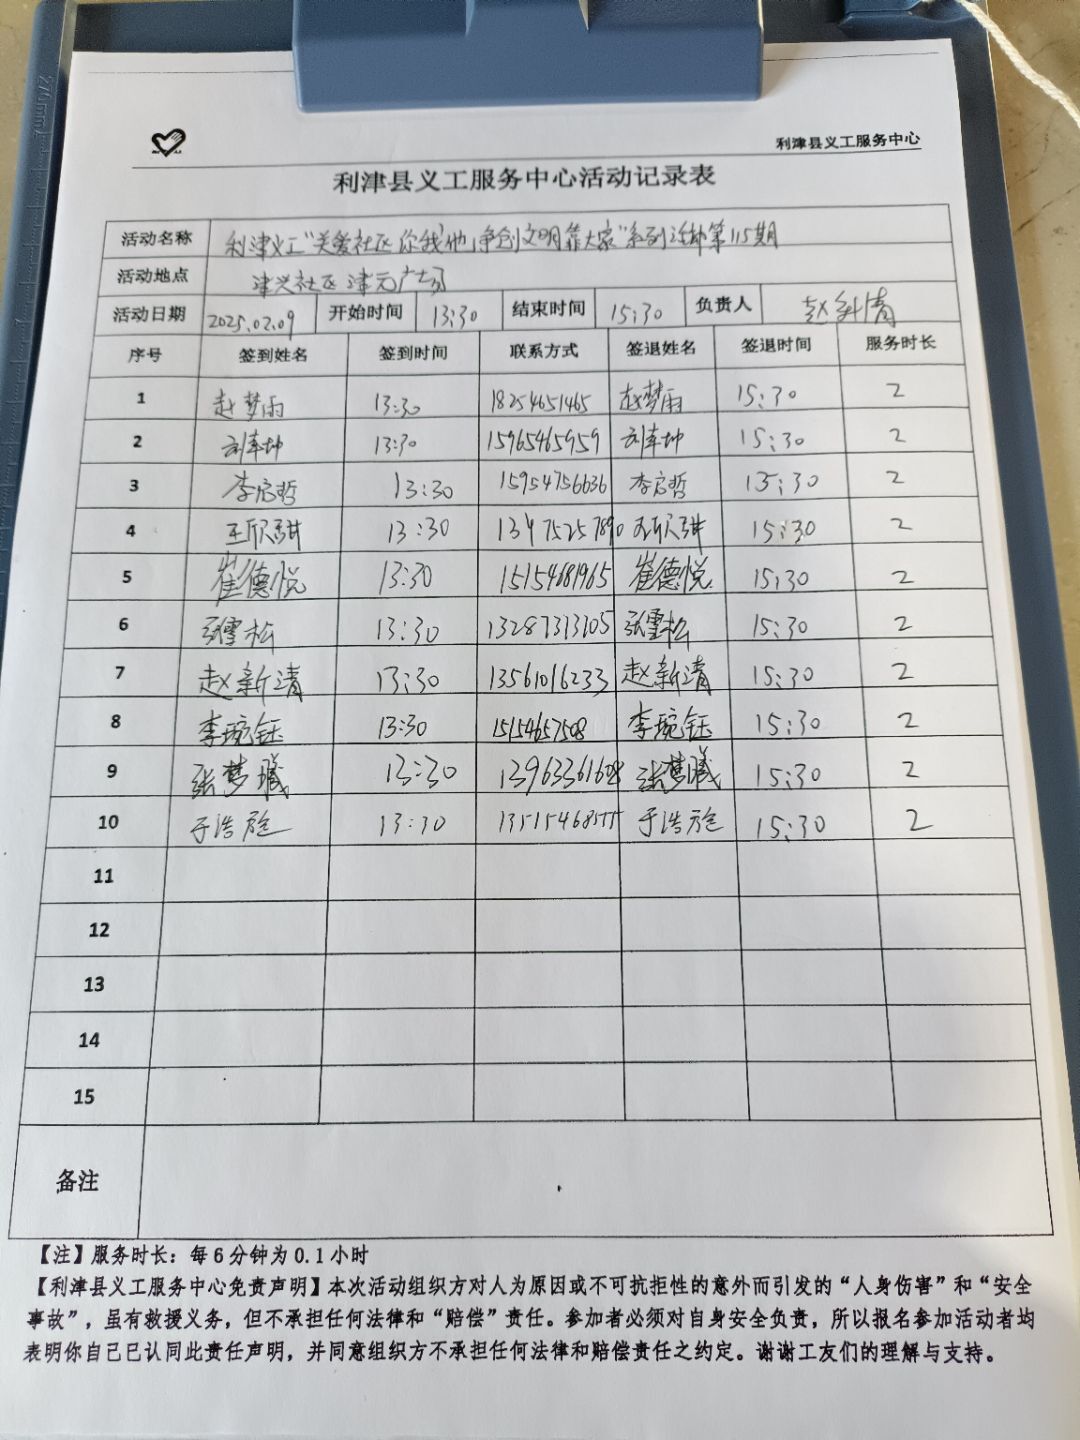 利津县义工服务中心
利津县义工服务中心活动记录表
活动名称 利津义工“关爱社区你我他,争创文明靠大家”系列活动第115期
活动地点 津兴社区津元广场
活动日期 2025.02.09 开始时间 13:30 结束时间 15:30 负责人 赵新清
序号 签到姓名 签到时间 联系方式 签退姓名 签退时间 服务时长
1 赵梦雨 13:30 18254651465 赵梦雨 15:30 2
2 13:30 15965465959 15:30 2
3 李启哲 13:30 15954756636 李启哲 15:30 2
4 13:30 13475257890 15:30 2
5 崔德悦 13:30 15154681965 崔德悦 15:30 2
6 张雪松 13:30 13287313105 张雪松 15:30 2
7 赵新清 13:30 13561016233 赵新清 15:30 2
8 李琬钰 13:30 15154657508 李琬钰 15:30 2
9 张梦曦 13:30 13963361628 张梦曦 15:30 2
10 13:30 15:30 2
11
12
13
14
15
备注
【注】服务时长：每6分钟为0.1小时
【利津县义工服务中心免责声明】本次活动组织方对人为原因或不可抗拒性的意外而引发的“人身伤害”和“安全
事故”，虽有救援义务，但不承担任何法律和“赔偿”责任。参加者必须对自身安全负责，所以报名参加活动者均
表明你自己已认同此责任声明，并同意组织方不承担任何法律和赔偿责任之约定。谢谢工友们的理解与支持。